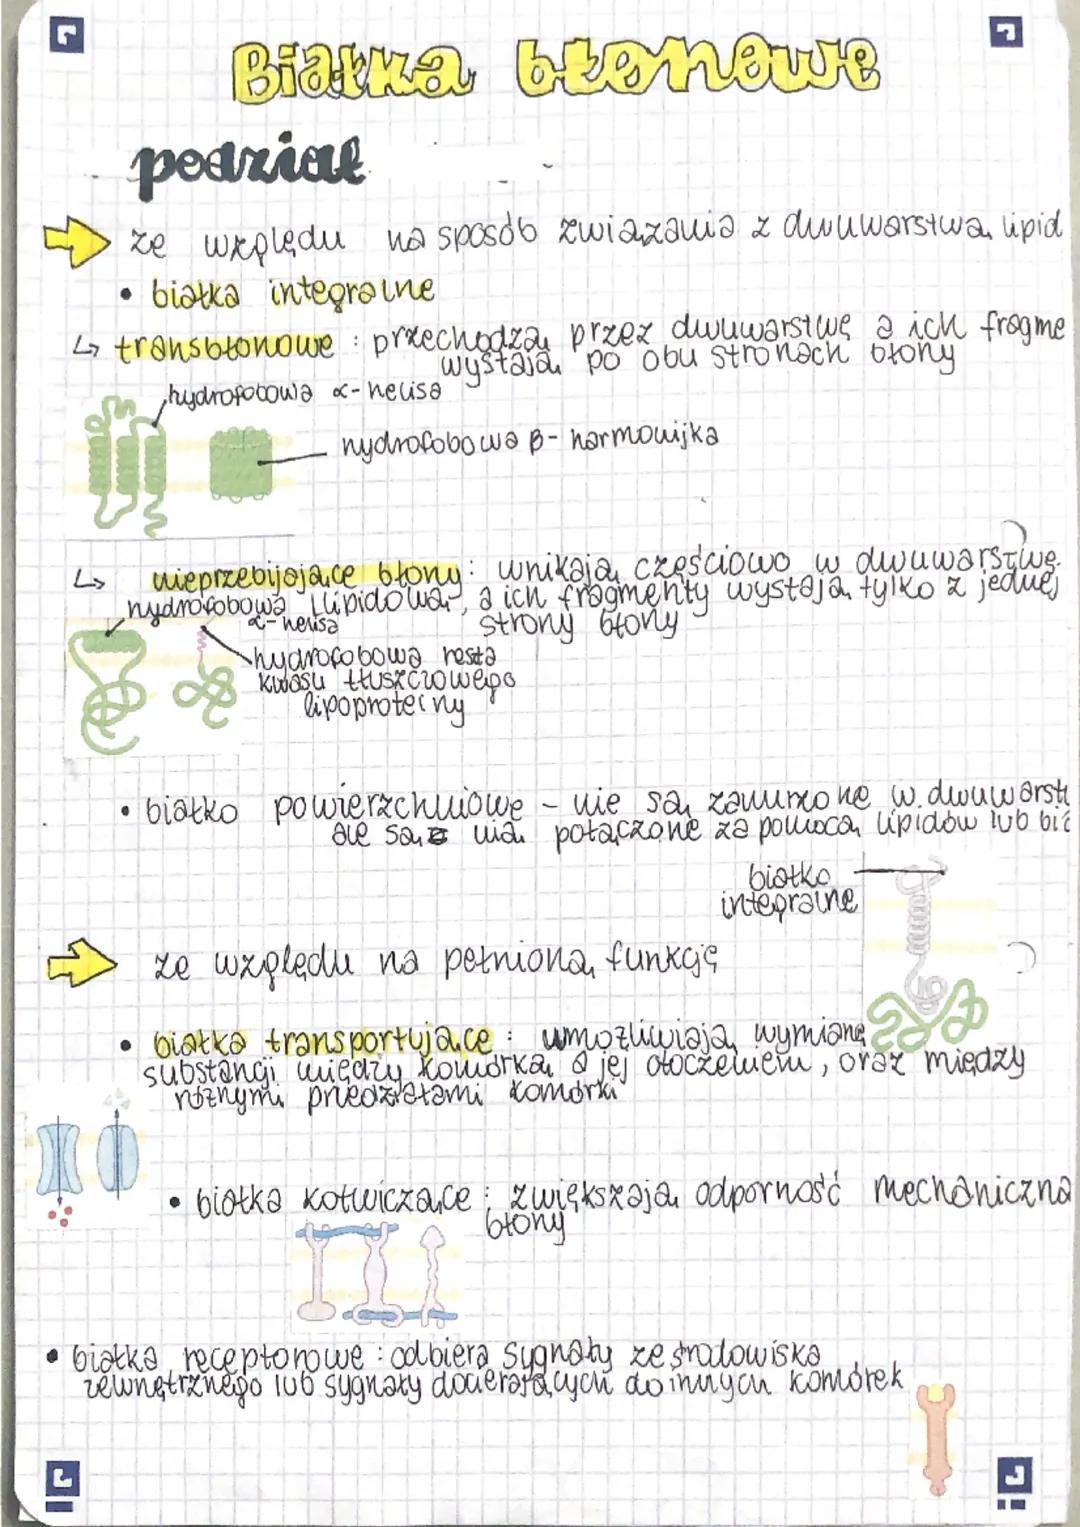 Białka błonowe
podział
ze względu na sposób związania z dwuwarstwą lipid
• białka integralne
↳ transbłonowe : przechodzą przez dwuwarstwę a ich fragme
wystają po obu stronach błony
hydrofobowa α-helisa
hydrofobowa β-harmonijka
↳ nieprzebijające błony : wnikają częściowo w dwuwarstwę
lipidową, a ich fragmenty wystają tylko z jednej
strony błony
hydrofobowa
α-helisa
hydrofobowa reszta
kwasu tłuszczowego
lipoproteiny
• białko powierzchniowe - nie są zanurzone w dwuwarst
ale są z nią połączone za pomocą lipidów lub bia
białko
integralne
ze względu na pełnioną funkcję
• białka transportujące : umożliwiają wymianę
substancji między komórką a jej otoczeniem, oraz między
różnymi przedziałami komórki
• białka kotwiczące : zwiększają odporność mechaniczną
błony
• białka receptorowe : odbiera sygnały ze środowiska
zewnętrznego lub sygnały docierających do innych komórek